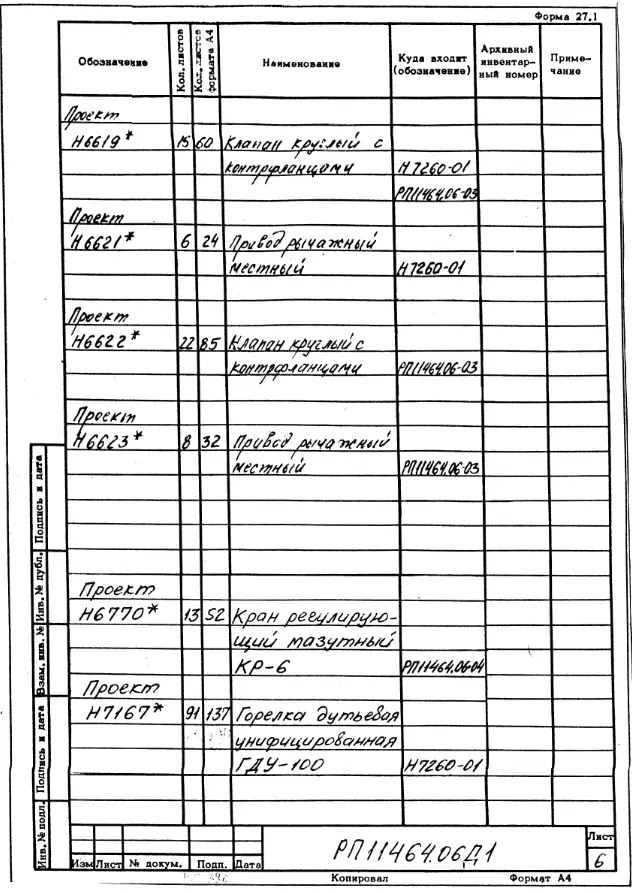 Форма 27.1
Обозначение
Кол. листов
Кол. листов формата А4
Наименование
Куда входит (обозначение)
Архивный инвентарный номер
Примечание
Проект
Н6619* 15 60 Клапан круглый с
контрфланцами Н7260-01
РП11464.06-03
Проект
Н6621* 6 24 Привод рычажный
местный Н7260-01
Проект
Н6622* 22 85 Клапан круглый с
контрфланцами РП11464.06-03
Проект
Н6623* 8 32 Привод рычажный
местный РП11464.06-03
Проект
Н6770* 13 52 Кран регулирую-
щий мазутный
КР-6 РП11464.06-04
Проект
Н7167* 91 137 Горелка дутьевая
унифицированная
ГДУ-100 Н7260-01
Подпись и дата
Инв. № дубл.
Взам. инв. №
Подпись и дата
Инв. № подл.
Изм Лист № докум. Подп. Дата
РП11464.06Д1
Лист
6
Копировал Формат А4